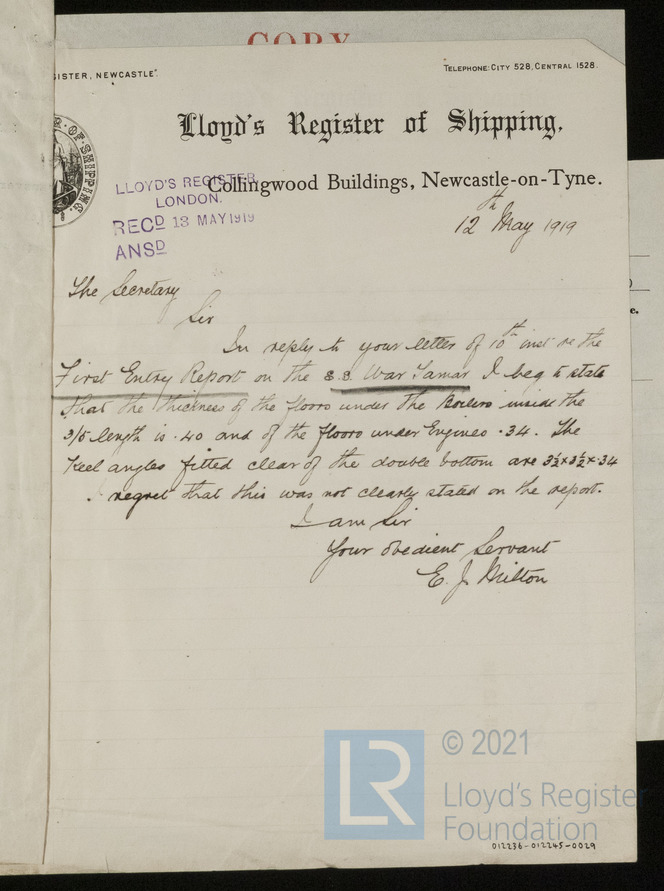 COPY
GISTER, NEWCASTLE".
TELEPHONE: CITY 528, CENTRAL 1528.
Lloyd's Register of Shipping,
Collingwood Buildings, Newcastle-on-Tyne.
OF SHIPPING
LLOYD'S REGISTER,
LONDON.
RECD 13 MAY 1919
ANSD
12th May 1919
The Secretary
Sir
In reply to your letter of 10th inst re the
First Entry Report on the S.S. War Tamar I beg to state
that the thickness of the floors under the Boilers inside the
3/5 length is .40 and of the floors under Engines .34. The
Keel angles fitted clear of the double bottom are 3½ x 3½ x .34
I regret that this was not clearly stated on the report.
I am Sir
Your obedient Servant
E. J. Milton
LR
© 2021
Lloyd's Register
Foundation
012236-012245-0029